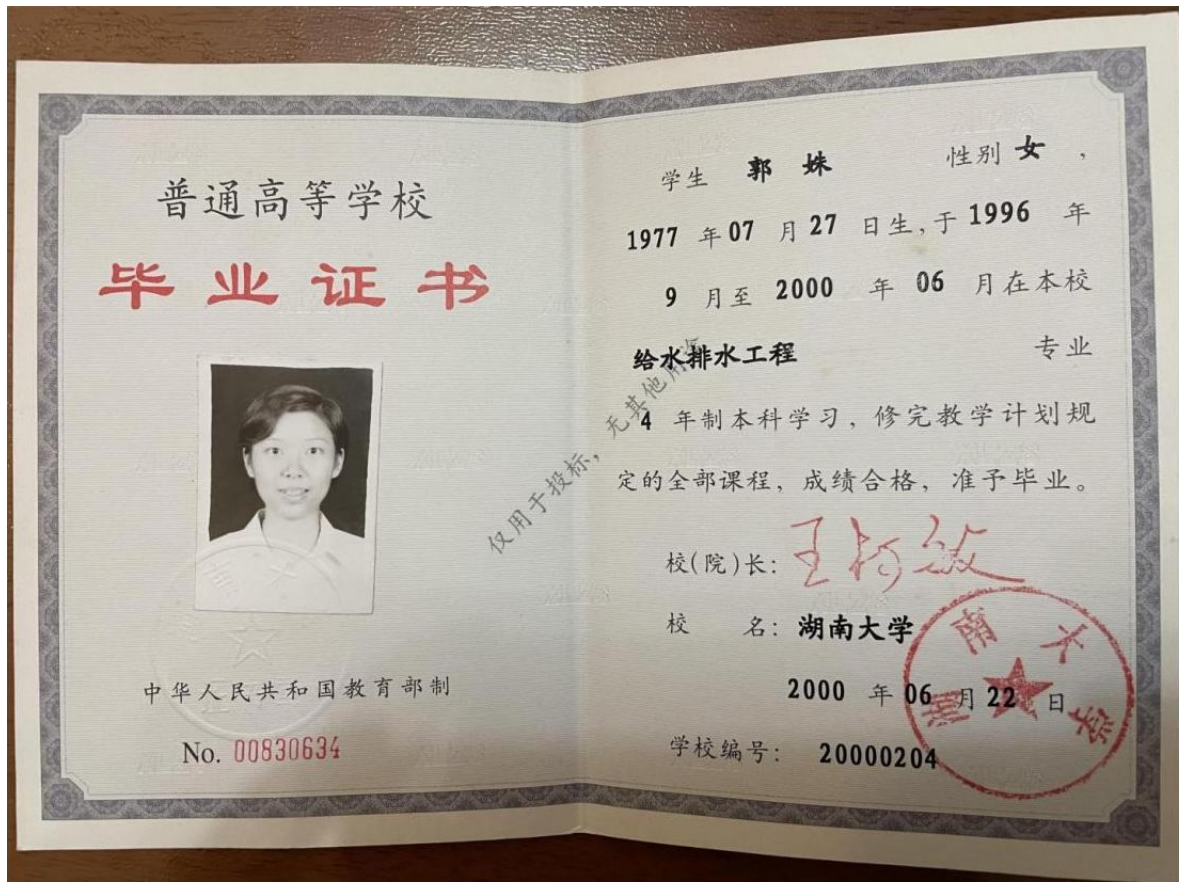 普通高等学校
毕业证书
中华人民共和国教育部制
No. 00830634
学生 郭姝 性别 女，
1977 年 07 月 27 日生，于 1996 年
9 月至 2000 年 06 月在本校
给水排水工程 专业
4 年制本科学习，修完教学计划规
定的全部课程，成绩合格，准予毕业。
校(院)长：
校 名：湖南大学
2000 年 06 月 22 日
学校编号：20000204
湖南大学
仅用于投标，无其他用途